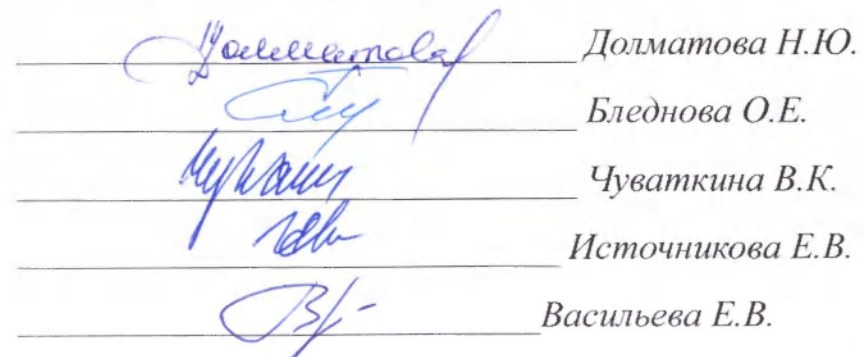 Долматова Долматова Н.Ю.
Бледнова О.Е.
Чуваткина В.К.
Источникова Е.В.
Васильева Е.В.